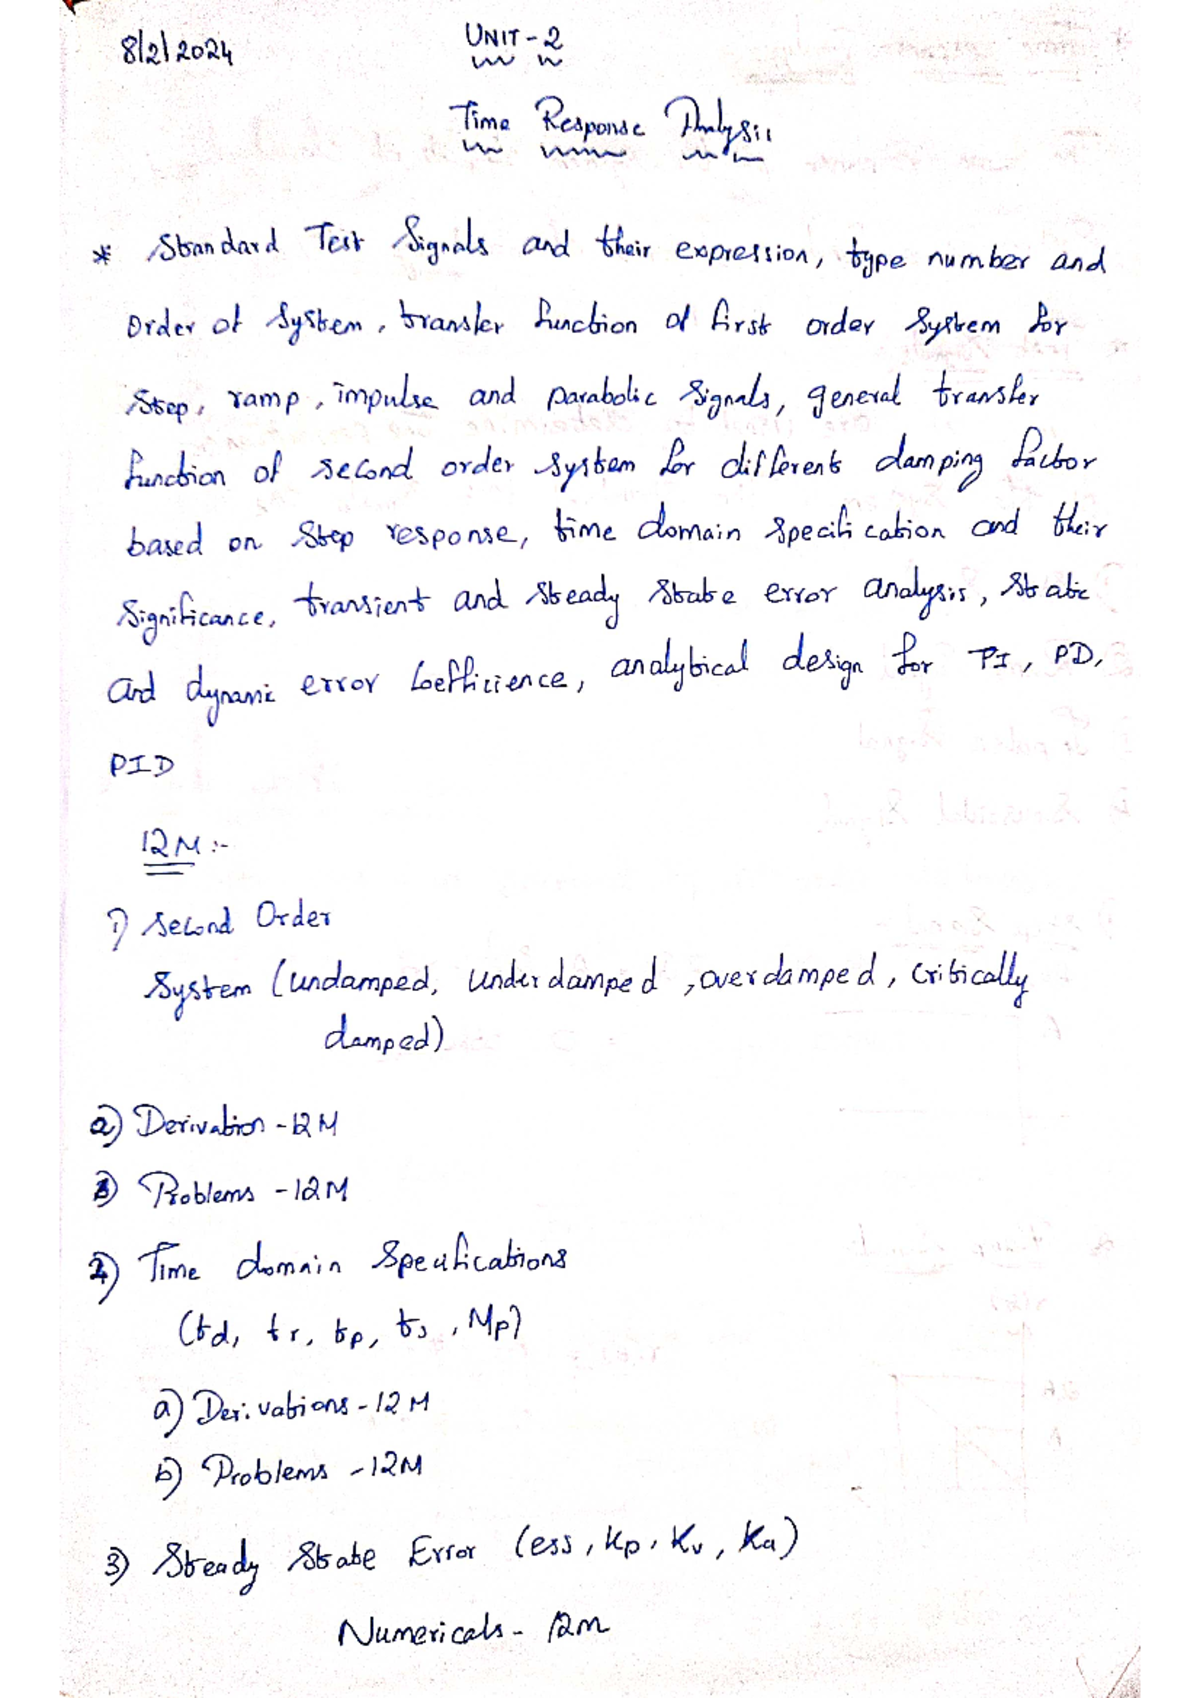 8/2/2024
UNIT-2
Time Response Analysis
* Standard Test Signals and their expression, type number and
Order of System, transfer function of first order System for
Step, ramp, impulse and parabolic Signals, general transfer
function of second order system for different damping factor
based on Step response, time domain specification and their
Significance, transient and steady state error analysis, static
and dynamic error Coefficience, analytical design for PI, PD,
PID
12M:-
1) Second Order
System (undamped, Underdamped, overdamped, Critically
damped)
a) Derivation - 12M
b) Problems - 12M
2) Time domain Specifications
(td, tr, tp, ts, Mp)
a) Derivations - 12M
b) Problems - 12M
3) Steady State Error (ess, Kp, Kv, Ka)
Numericals - 12m